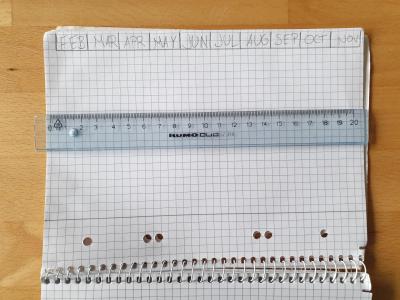 FEB MAR APR MAY JUN JUL AUG SEP OCT NOV
0 2 3 4 5 6 7 8 9 10 11 12 13 14 15 16 17 18 19 20
KUM® DUO